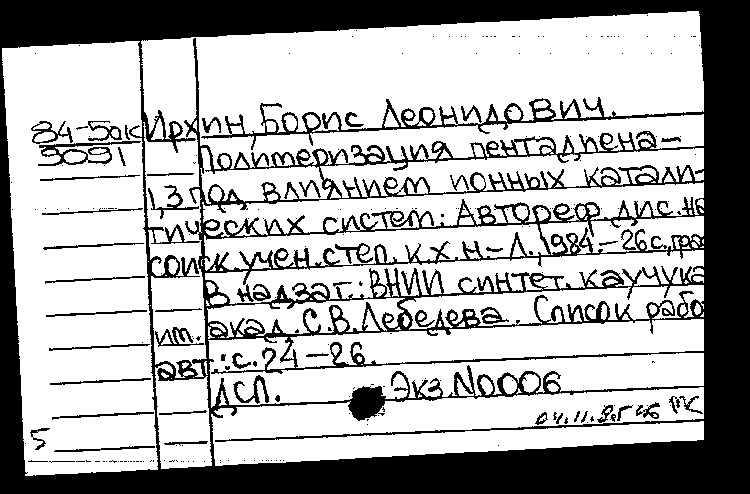 84-5ок Ирхин, Борис Леонидович.
9091 Полимеризация пентадиена-
1,3 под влиянием ионных катали-
тических систем: Автореф. дис. на
соиск. учен. степ. к.х.н.-Л., 1984.-26 с., граф
В надзаг.: ВНИИ синтет. каучука
им. акад. С.В. Лебедева. Список рабо
авт.: с. 24-26.
ДСП. Экз. N0006.
04.11.
5